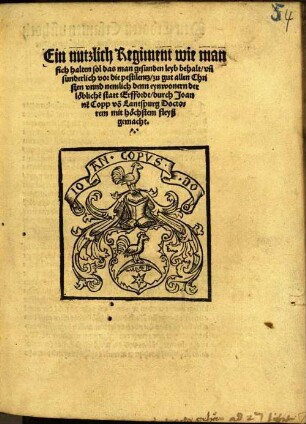 54
Ein nutzlich Regiment wie man
sich halten sol das man gesunden leyb behalt/vñ
sunderlich vor die pestilentz/zu gut allen Chri
sten vnnd nemlich denn eynwonern der
löbliche͂ statt Erffordt/durch Joan
ne͂ Copp võ Lantspurg Docto⸗
rem mit höchstem fleyß
gemacht.
IO AN · COPVS · DO